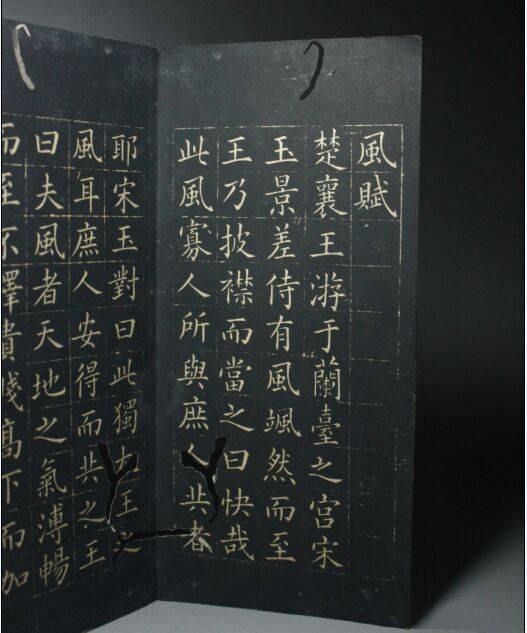 風賦
楚襄王游于蘭臺之宮宋
玉景差侍有風颯然而至
王乃披襟而當之曰快哉
此風寡人所與庶人共者
耶宋玉對曰此獨大王之
風耳庶人安得而共之王
曰夫風者天地之氣溥暢
而至不擇貴賤高下而加